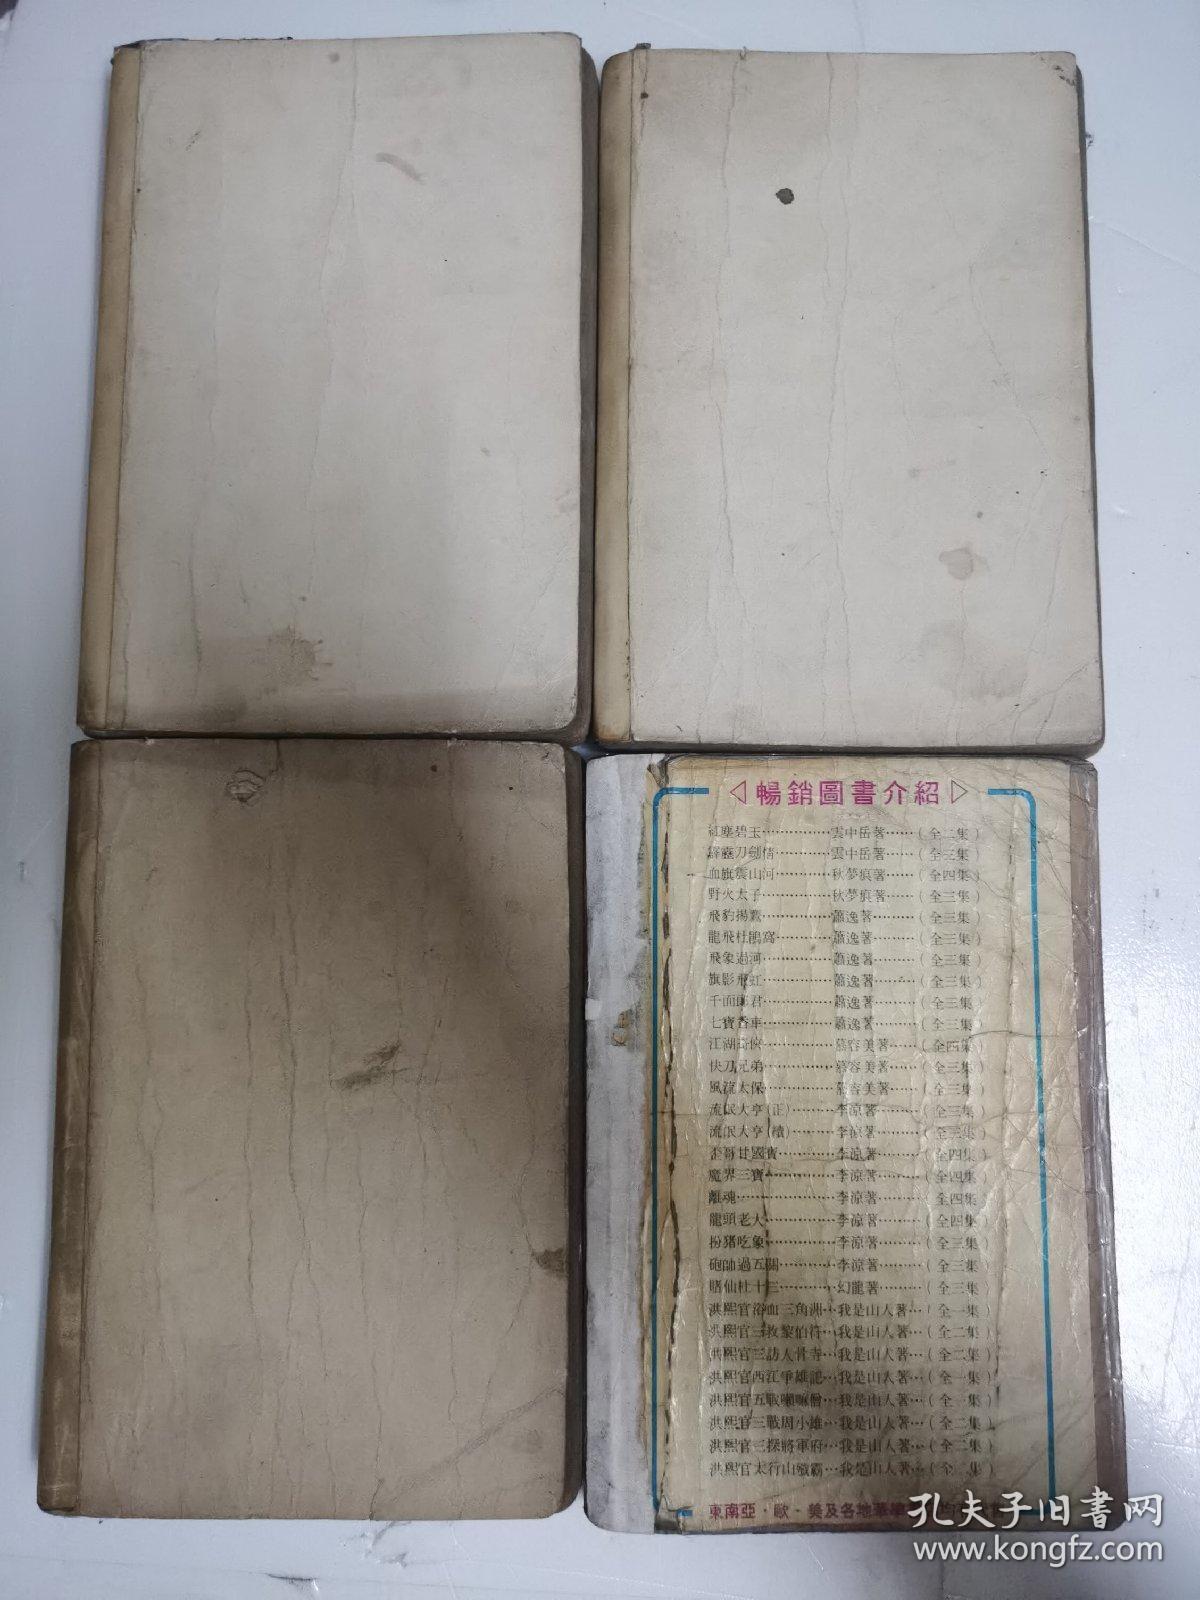 ◁暢銷圖書介紹▷
紅塵碧玉……………雲中岳著……(全二集)
霹靂刀劍情…………雲中岳著……(全三集)
血旗震山河…………秋夢痕著……(全四集)
野火太子……………秋夢痕著……(全三集)
飛豹揚鷹……………蕭逸著………(全三集)
龍飛杜鵑窩…………蕭逸著………(全三集)
飛象過河……………蕭逸著………(全三集)
旗影飛虹……………蕭逸著………(全三集)
千面郎君……………蕭逸著………(全三集)
七寶香車……………蕭逸著………(全三集)
江湖奇俠……………慕容美著……(全四集)
快刀兄弟……………慕容美著……(全三集)
風流太保……………慕容美著……(全三集)
流氓大亨(正)………李涼著………(全三集)
流氓大亨(續)………李涼著………(全三集)
歪哥甘國寶…………李涼著………(全四集)
魔界三寶……………李涼著………(全四集)
離魂…………………李涼著………全四集
龍頭老大……………李涼著………(全四集)
扮猪吃象……………李涼著………(全三集)
砲帥過五關…………李涼著………(全三集)
賭仙杜十三…………幻龍著………(全三集)
洪熙官浴血三角洲…我是山人著…(全一集)
洪熙官三救黎伯符…我是山人著…(全二集)
洪熙官三訪人骨寺…我是山人著…(全二集)
洪熙官西江爭雄記…我是山人著…(全一集)
洪熙官五戰喇嘛僧…我是山人著…(全一集)
洪熙官三戰周小雄…我是山人著…(全二集)
洪熙官三探將軍府…我是山人著…(全二集)
洪熙官太行山殲霸…我是山人著…(全二集)
東南亞·歐·美及各地華
孔夫子旧書网
www.kongfz.com